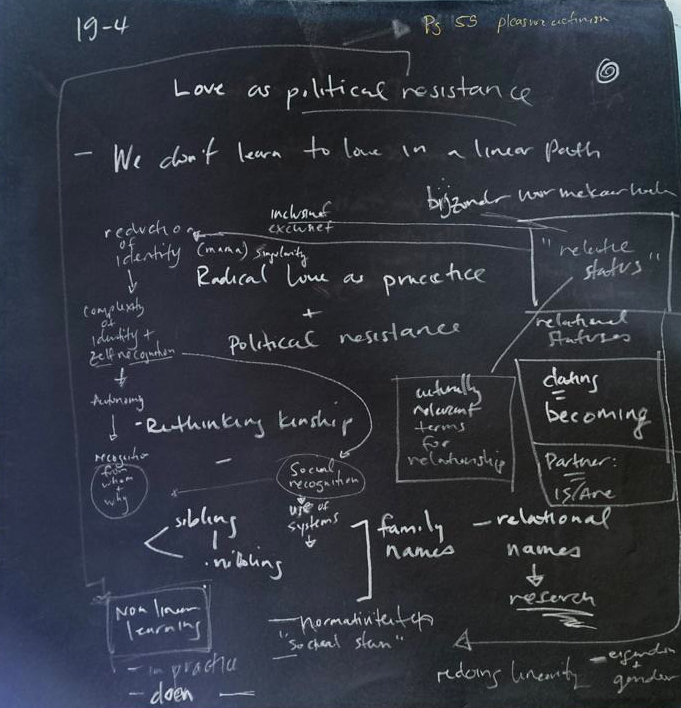 19-4
Pg 55 pleasure activism
Love as political resistance
- We don't learn to love in a linear path
bijzonder voor mekaar
inclusief
exclusief
reduction
of
identity
(mama) singularity
"relatie
status"
Radical love as practice
+
Political resistance
complexity
of
identity +
self recognition
relational
statuses
culturally
relevant
terms
for
relationship
dating
=
becoming
Partner:
=
is/Are
Autonomy
- Rethinking kinship
-
recognition
from
whom
+
why
Social
recognition
use of
systems
sibling
nibling
family
names
- relational
names
research
Non linear
learning
- in practice
- doen -
"Social
redoing linearity
gender